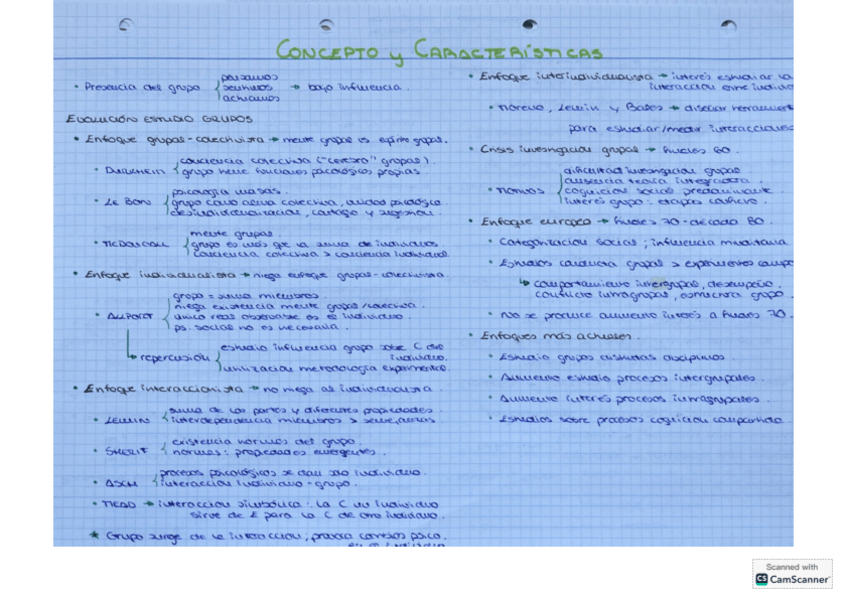 CONCEPTO y CARACTERÍSTICAS
• Presencia del grupo { pensamos
sentimos
actuamos → bajo influencia.
EVOLUCIÓN ESTUDIO GRUPOS
• Enfoque grupal-colectivista → mente grupal o espíritu grupal.
• DURKHEIM { conciencia colectiva ("cerebro" grupal).
grupo tiene funciones psicológicas propias.
• LE BON { psicología masas.
grupo como alma colectiva, unidad psicológica
desindividualización, contagio y sugestión.
• MCDOUGALL { mente grupal.
grupo es más que la suma de individuos
conciencia colectiva > conciencia individual
• Enfoque individualista → niega enfoque grupal-colectivista.
• ALLPORT { grupo = suma miembros
niega existencia mente grupal/colectiva.
único real observable es el individuo
ps. social no es necesaria.
→ repercusión { estudio influencia grupo sobre C del
individuo.
utilización metodología experimental.
• Enfoque interaccionista → no niega al individualista.
• LEWIN { suma de las partes y diferentes propiedades
interdependencia miembros > semejanzas
• SHERIF { existencia normas del grupo.
normas: propiedades emergentes.
• ASCH { procesos psicológicos se dan sólo individuo.
interacción individuo-grupo.
• MEAD → interacción simbólica: la C un individuo
sirve de E para la C de otro individuo.
* Grupo surge de la interacción, provoca cambios psico.
• Enfoque interindividualista → interés estudiar la
interacción entre individuo
• Moreno, Lewin y Bales → diseñar herramient
para estudiar/medir interacciones
• Crisis investigación grupal → finales 60.
• MOTIVOS { dificultad investigación grupal
ausencia teoría integradora.
cognición social predominante.
interés grupo: etapas conflicto.
• Enfoque europeo → finales 70 - década 80.
• Categorización social; influencia minoritaria
• Estudios conducta grupal > experimentos campo
↳ comportamiento intergrupal, desempeño.
conflicto intragrupal, estructura grupo.
• No se produce aumento interés a finales 70.
• Enfoques más actuales.
• Estudio grupos distintas disciplinas.
• Aumento estudio procesos intergrupales.
• Aumento interés procesos intragrupales.
• Estudios sobre procesos cognición compartida.
Scanned with
CS CamScanner